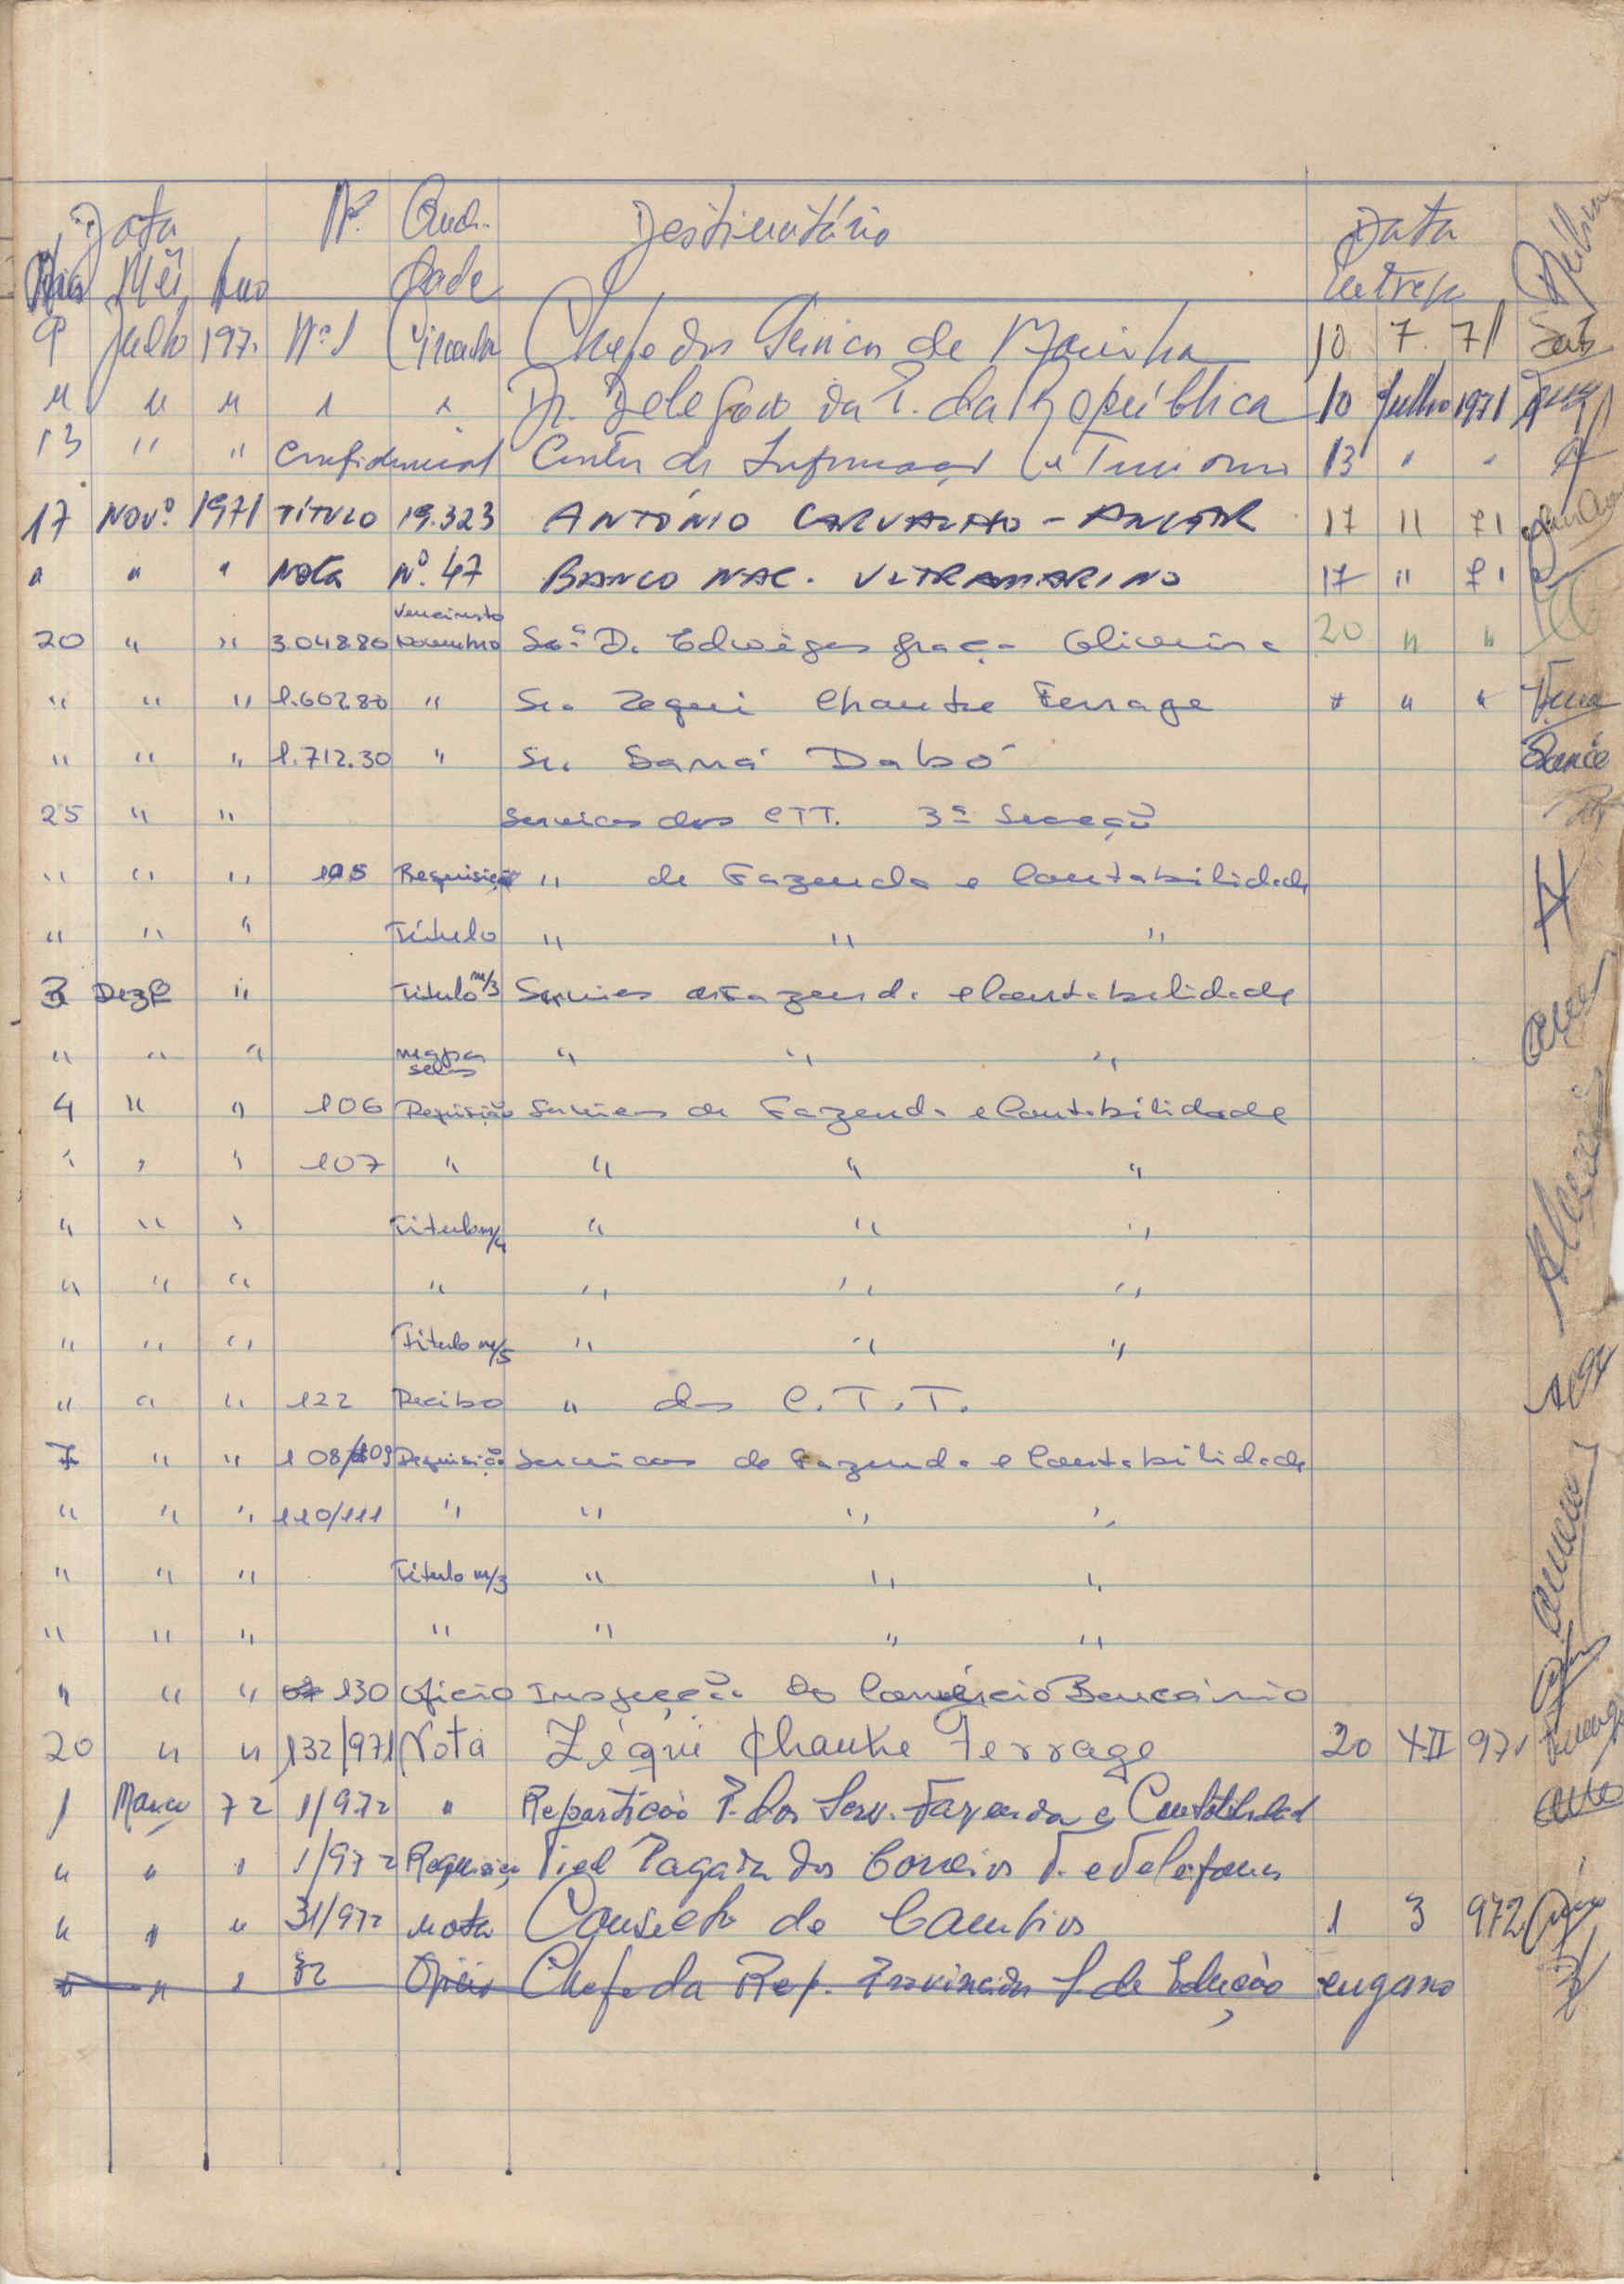 Data Nº Qua- Destinatário Data
Dia Mês Ano dade Entrega
9 Julho 197. Nº 1 Circular Chefe dos Serviços de Marinha 10 7. 71
" " " 1 " Dr. Delegado da P. da República 10 Julho 1971
13 " " Confidencial Centro de Informação e Turismo 13 " "
17 NOVº. 1971 TÍTULO 19.323 ANTÓNIO CARVALHO - 17 11 71
" " " NOTA Nº. 47 BANCO NAC. ULTRAMARINO 17 11 71
Vencimento
20 " " 3.048.80 Novembro Srª D. Edwiges Graça Oliveira 20 " "
" " " 1.602.80 " Sr. Zequi Chantre Ferrage " " "
" " " 1.712.30 " Sr. Saná Dabó
25 " " Serviços dos CTT. 3ª Secção
" " " 105 Requisição " de Fazenda e Contabilidade
" " " Título " " "
3 Dezº " Título m/3 Serviços de Fazenda e Contabilidade
" " " mapa " " "
selos
4 " " 106 Requisição Serviços de Fazenda e Contabilidade
" " " 107 " " " "
" " " Título m/4 " " "
" " " " " " "
" " " Título m/5 " " "
" " " 122 Recibo " dos C.T.T.
7 " " 108/109 Requisição Serviços de Fazenda e Contabilidade
" " " 110/111 " " " "
" " " Título m/3 " " "
" " " " " " "
" " " 130 Ofício Inspecção do Comércio Bancário
20 " " 132/971 Nota Zéqui Chantre Ferrage 20 XII 971
1 Março 72 1/972 " Repartição P. dos Serv. Fazenda e Contabilidad
" " " 1/972 Requisição Fiel Pagador dos Correios T. e Telefones
" " " 31/972 Nota Conselho de Câmbios 1 3 972
" " " 32 Ofício Chefe da Rep. Provincial S. de Educação engano